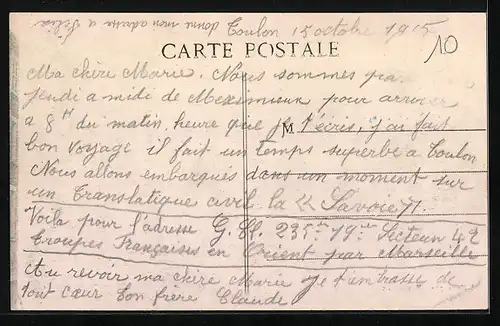 donne mon adresse a Félix
Toulon 15 octobre 1915
CARTE POSTALE
10
Ma chère Marie. Nous sommes
jendi a midi de Meximieux pour arriver
a 8h du matin, heure que je t'écris, j'ai fait
M
bon voyage il fait un temps superbe a Toulon
Nous allons embarquès dans un moment sur
un Translatique avec la « Savoie ».
Voila pour l'adresse G. 235ème 19ème Secteur 42
Troupes Françaises en Orient par Marseille
Au revoir ma chère Marie je t'embrasse de
tout cœur ton frère Claude